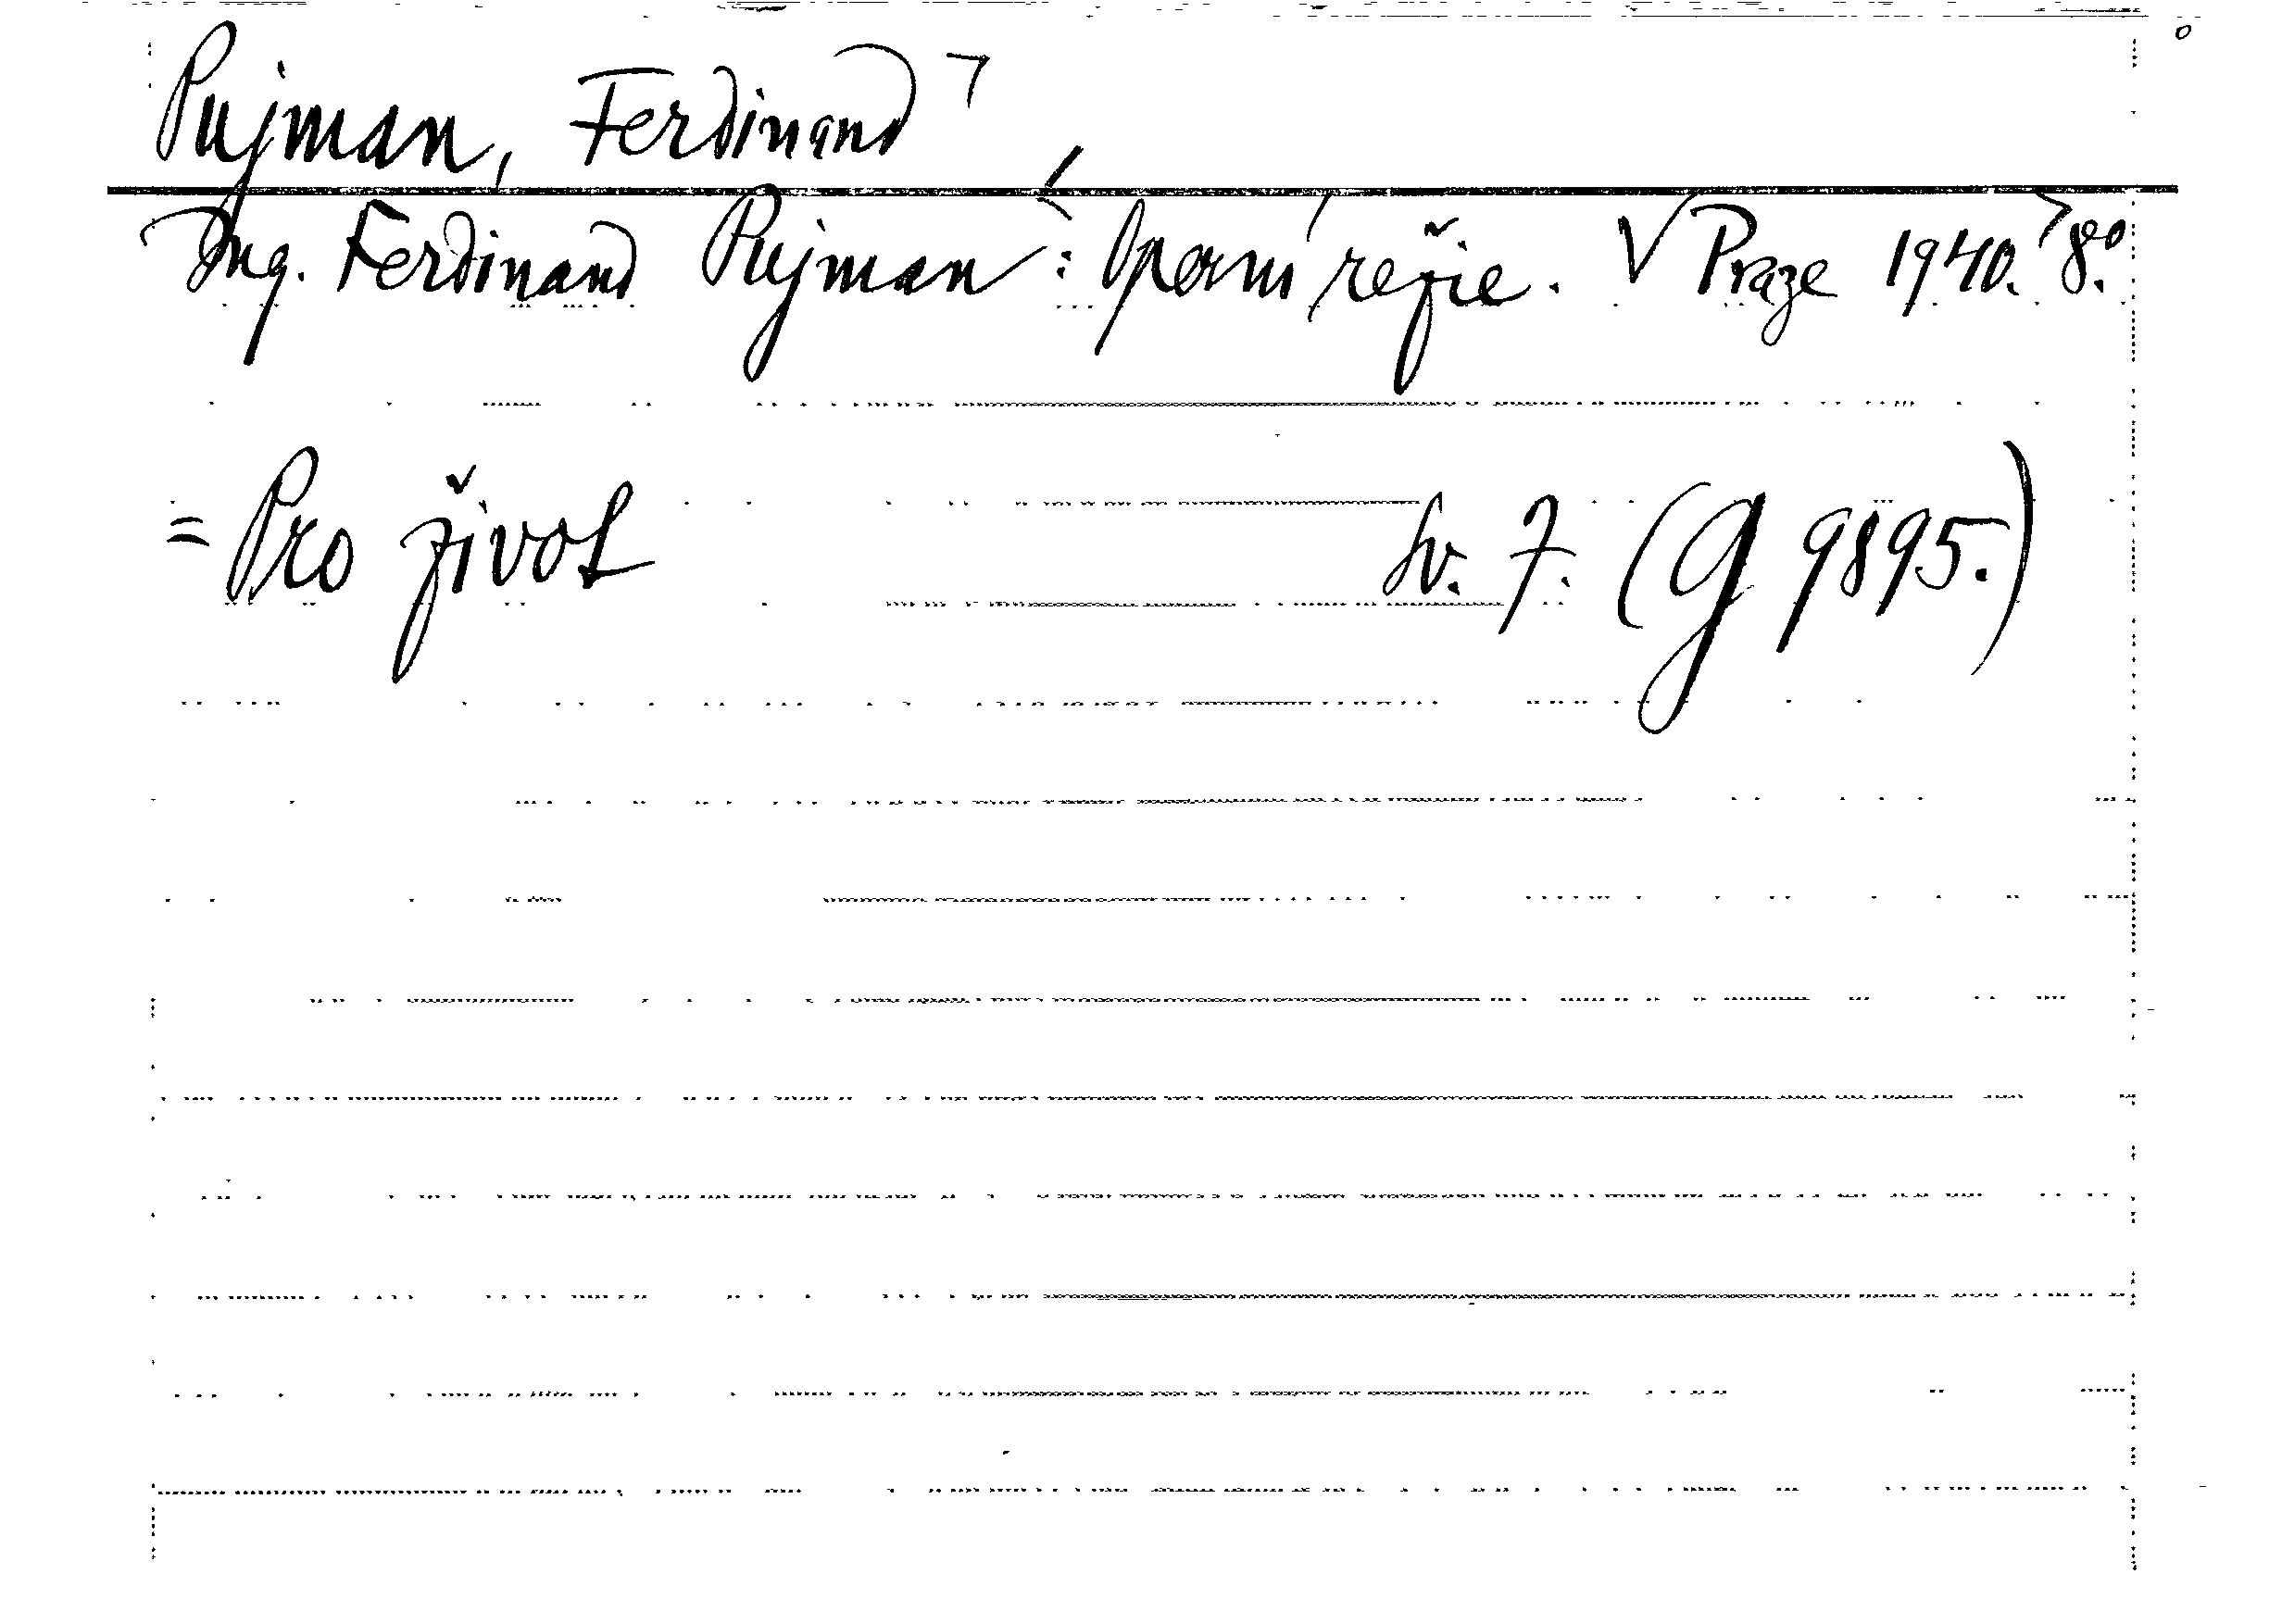 Pujman, Ferdinand
Ing. Ferdinand Pujman: Operní režie. V Praze 1940. 8.°
= Pro život sv. 7. (G 9895.)